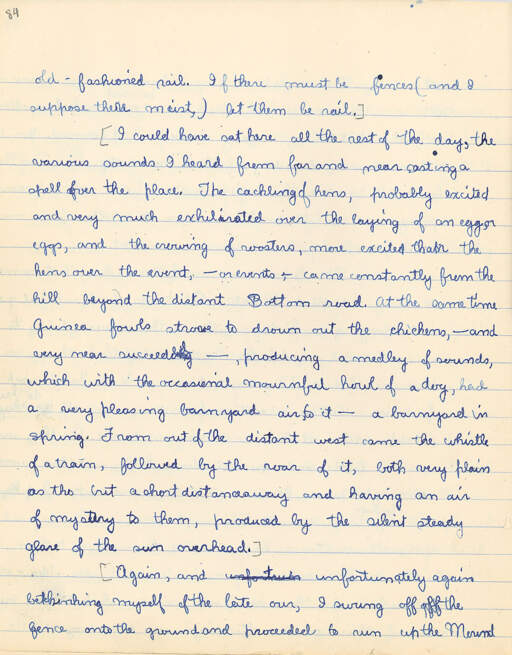 84
old-fashioned rail. If there must be fences (and I
suppose there must,) let them be rail.]
[I could have sat here all the rest of the day, the
various sounds I heard from far and near casting a
spell over the place. The cackling of hens, probably excited
and very much exhilarated over the laying of an egg or
eggs, and the crowing of roosters, more excited than the
hens over the event, — or events — came constantly from the
hill beyond the distant Bottom road. At the same time
Guinea fowls strove to drown out the chickens, — and
very near succeeding —, producing a medley of sounds,
which with the occasional mournful howl of a dog, had
a very pleasing barnyard air to it — a barnyard in
spring. From out of the distant west came the whistle
of a train, followed by the roar of it, both very plain
as tho but a short distance away and having an air
of mystery to them, produced by the silent steady
glare of the sun overhead.]
[Again, and unfortunately again
bethinking myself of the late our, I swung off the
fence onto the ground and proceeded to run up the Mound